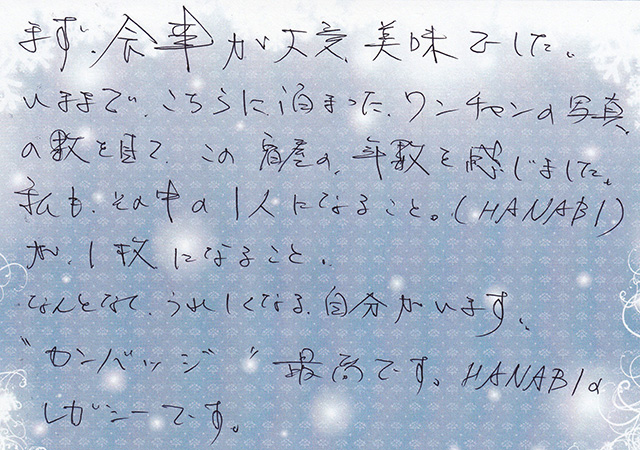 まず、食事が大変、美味でした。
いままで、こちらに泊まった、ワンチャンの写真、
の数を見て、この宿屋の、年数を感じました。
私も、その中の1人になること。(HANABI)
が、1枚になること。
なんとなく、うれしくなる、自分がいます。
"カンバッジ" 最高です。HANABIの
レガシーです。